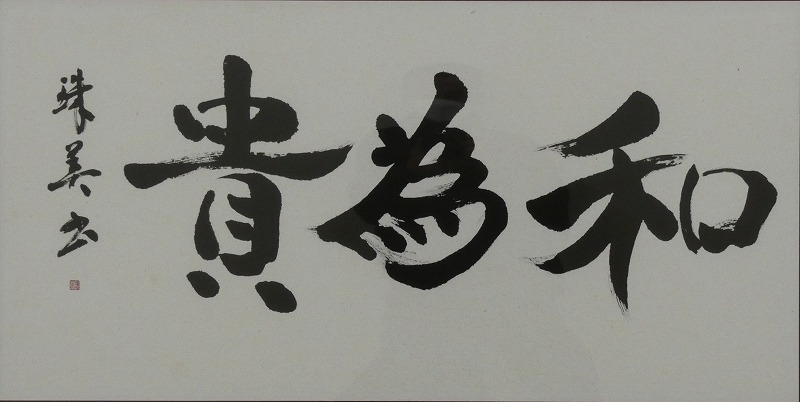 和為貴
珠美书